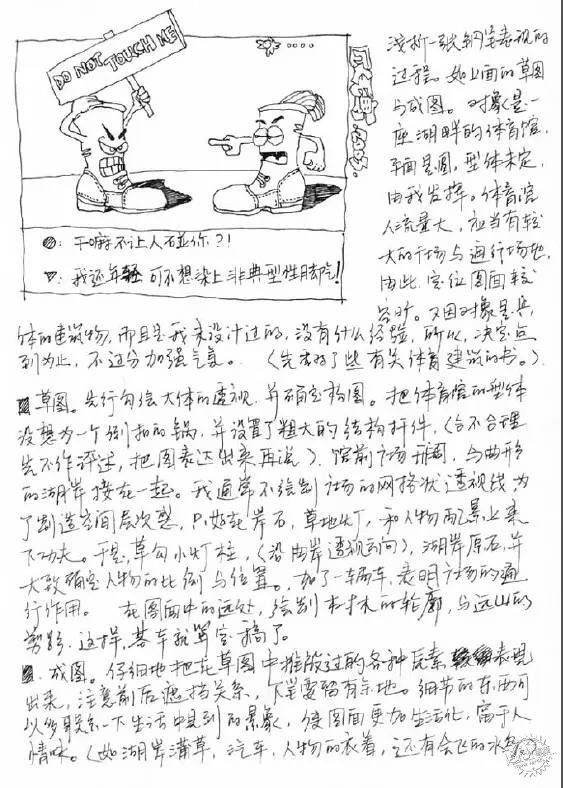 DO NOT TOUCH ME
浅析一张钢笔表现的
过程。如上面的草图
与成图。对象是一
座湖畔的体育馆,
平面是圆,型体未定,
由我发挥。体育馆
人流量大,应当有较
大的广场与通行场地,
由此,定位图面较
容时。又因对象是具
:干嘛不让人碰你?!
:我还年轻 可不想染上非典型性脚气!
体的建筑物,而且是我未设计过的,没有什么经验,所以,决定点
到为止,不过分加强气氛。(先去找了些有关体育建筑的书。)
草图。先行勾绘大体的透视,并确定构图。把体育馆的型体
设想为一个倒扣的锅,并设置了粗大的结构杆件,(合不合理
先不作评述,把图表达出来再说)。馆前广场开阔,与曲形
的湖岸接在一起。我通常不绘制广场的网格状透视线,为
了制造空间层次型,只好在岸石,草地灯,和人物配景上来
下功夫。于是,草勾小灯柱,(沿曲岸透视方向),湖岸原石,并
大致确定人物的比例与位置。加了一辆车,表明广场的通
行作用。在图面中的远处,绘制树木的轮廓,与远山的
剪影。这样,基本就算定稿了。
成图。仔细地把在草图中推敲过的各种元素表现
出来,注意前后遮挡关系,下笔要留有余地。细节的东西可
以多联系一下生活中见到的景象,使图面更加生活化,富于人
情味。(如湖岸蒲草,汽车,人物的衣着,还有会飞的水鸟